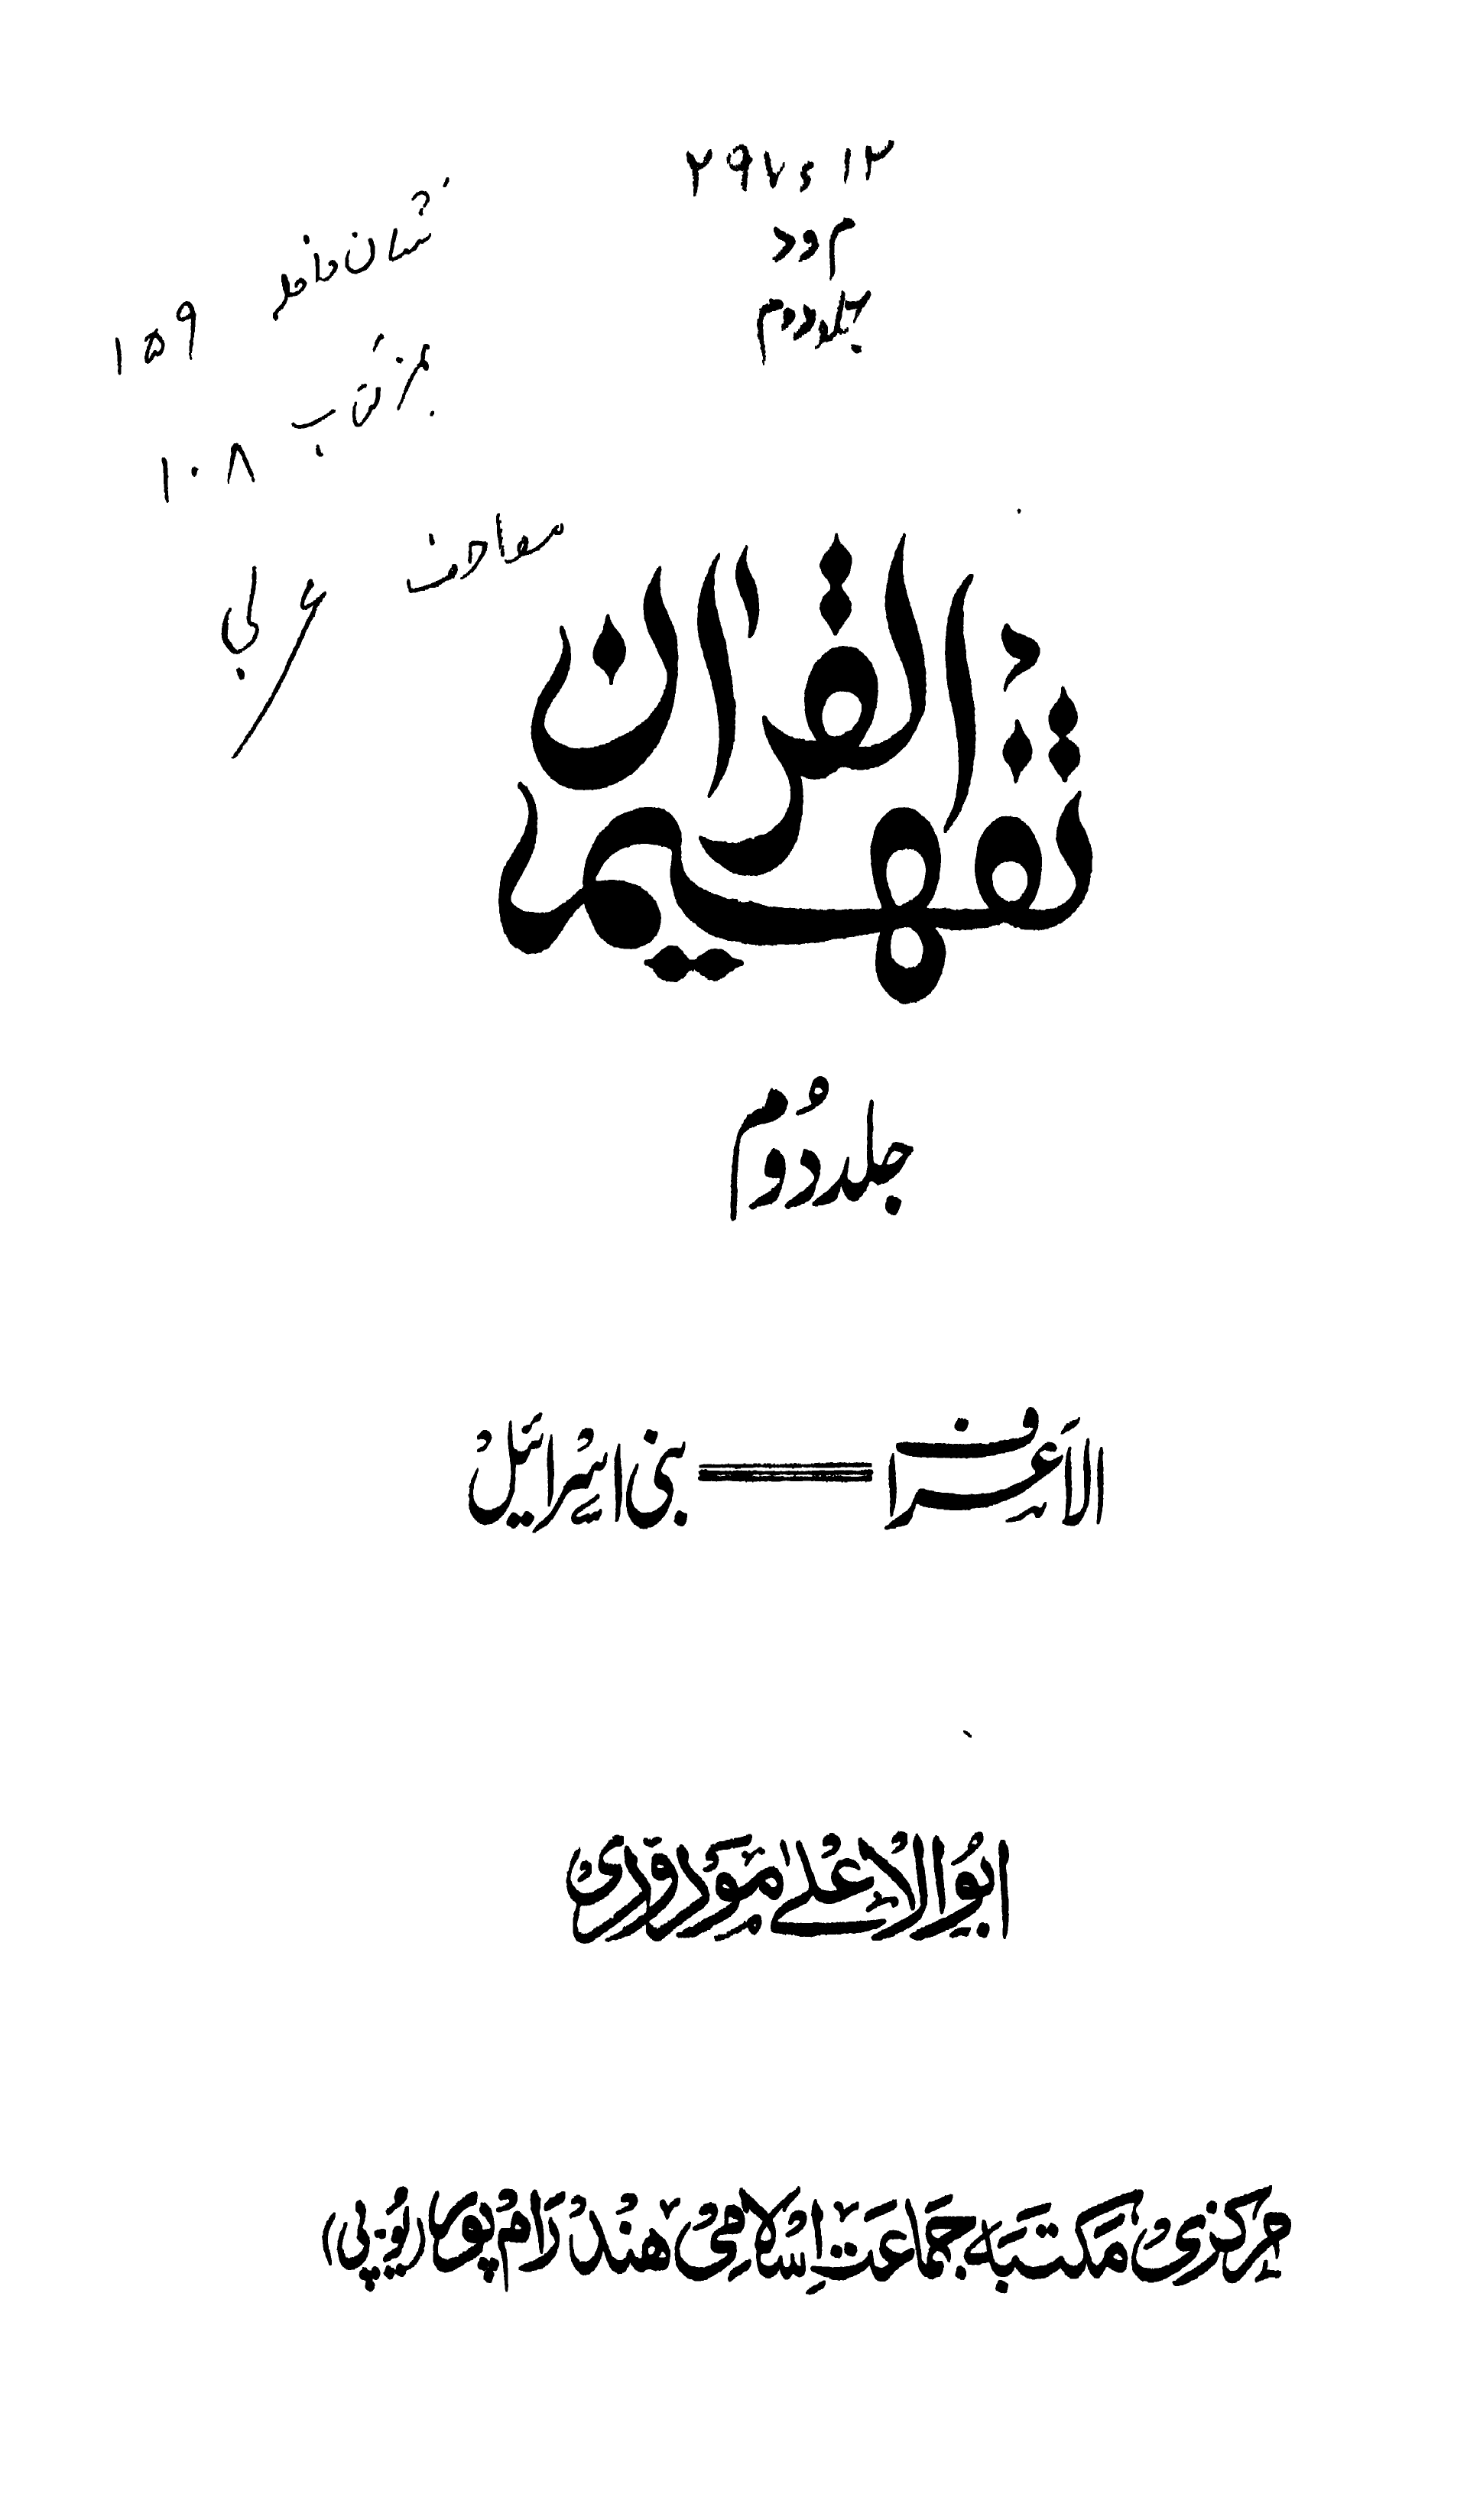 ۲۹۷۶۱۲
م و د
جلد دوم
نشان خاطر ۱۵۹
نمبر کتاب ۱۰۸
تفہیم القرآن
جلد دُوم
الاَعراف ═══ بنی اسرائیل
ابوالاعلیٰ مودودی
مرکزی مکتبہ جماعت اسلامی ہند رام پور یوپی